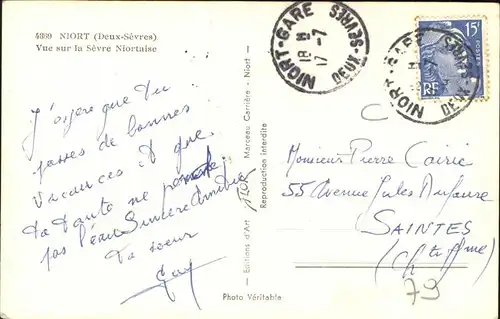 4380 NIORT (Deux-Sèvres)
Vue sur la Sèvre Niortaise
J'espère que tu
passes de bonnes
vacances et que
ta santé ne
pas Bien Sincère Amitié
Ta soeur
Marceau Carrière - Niort -
- Editions d'Art
Reproduction Interdite
Photo Véritable
NIORT-GARE
18 H
17 -7
DEUX-SÈVRES
NIORT-GARE
DEUX-SÈVRES
15F
POSTES
RF
Monsieur Pierre
55 Avenue Jules Dufaure
SAINTES
(Ch te Mme)
79